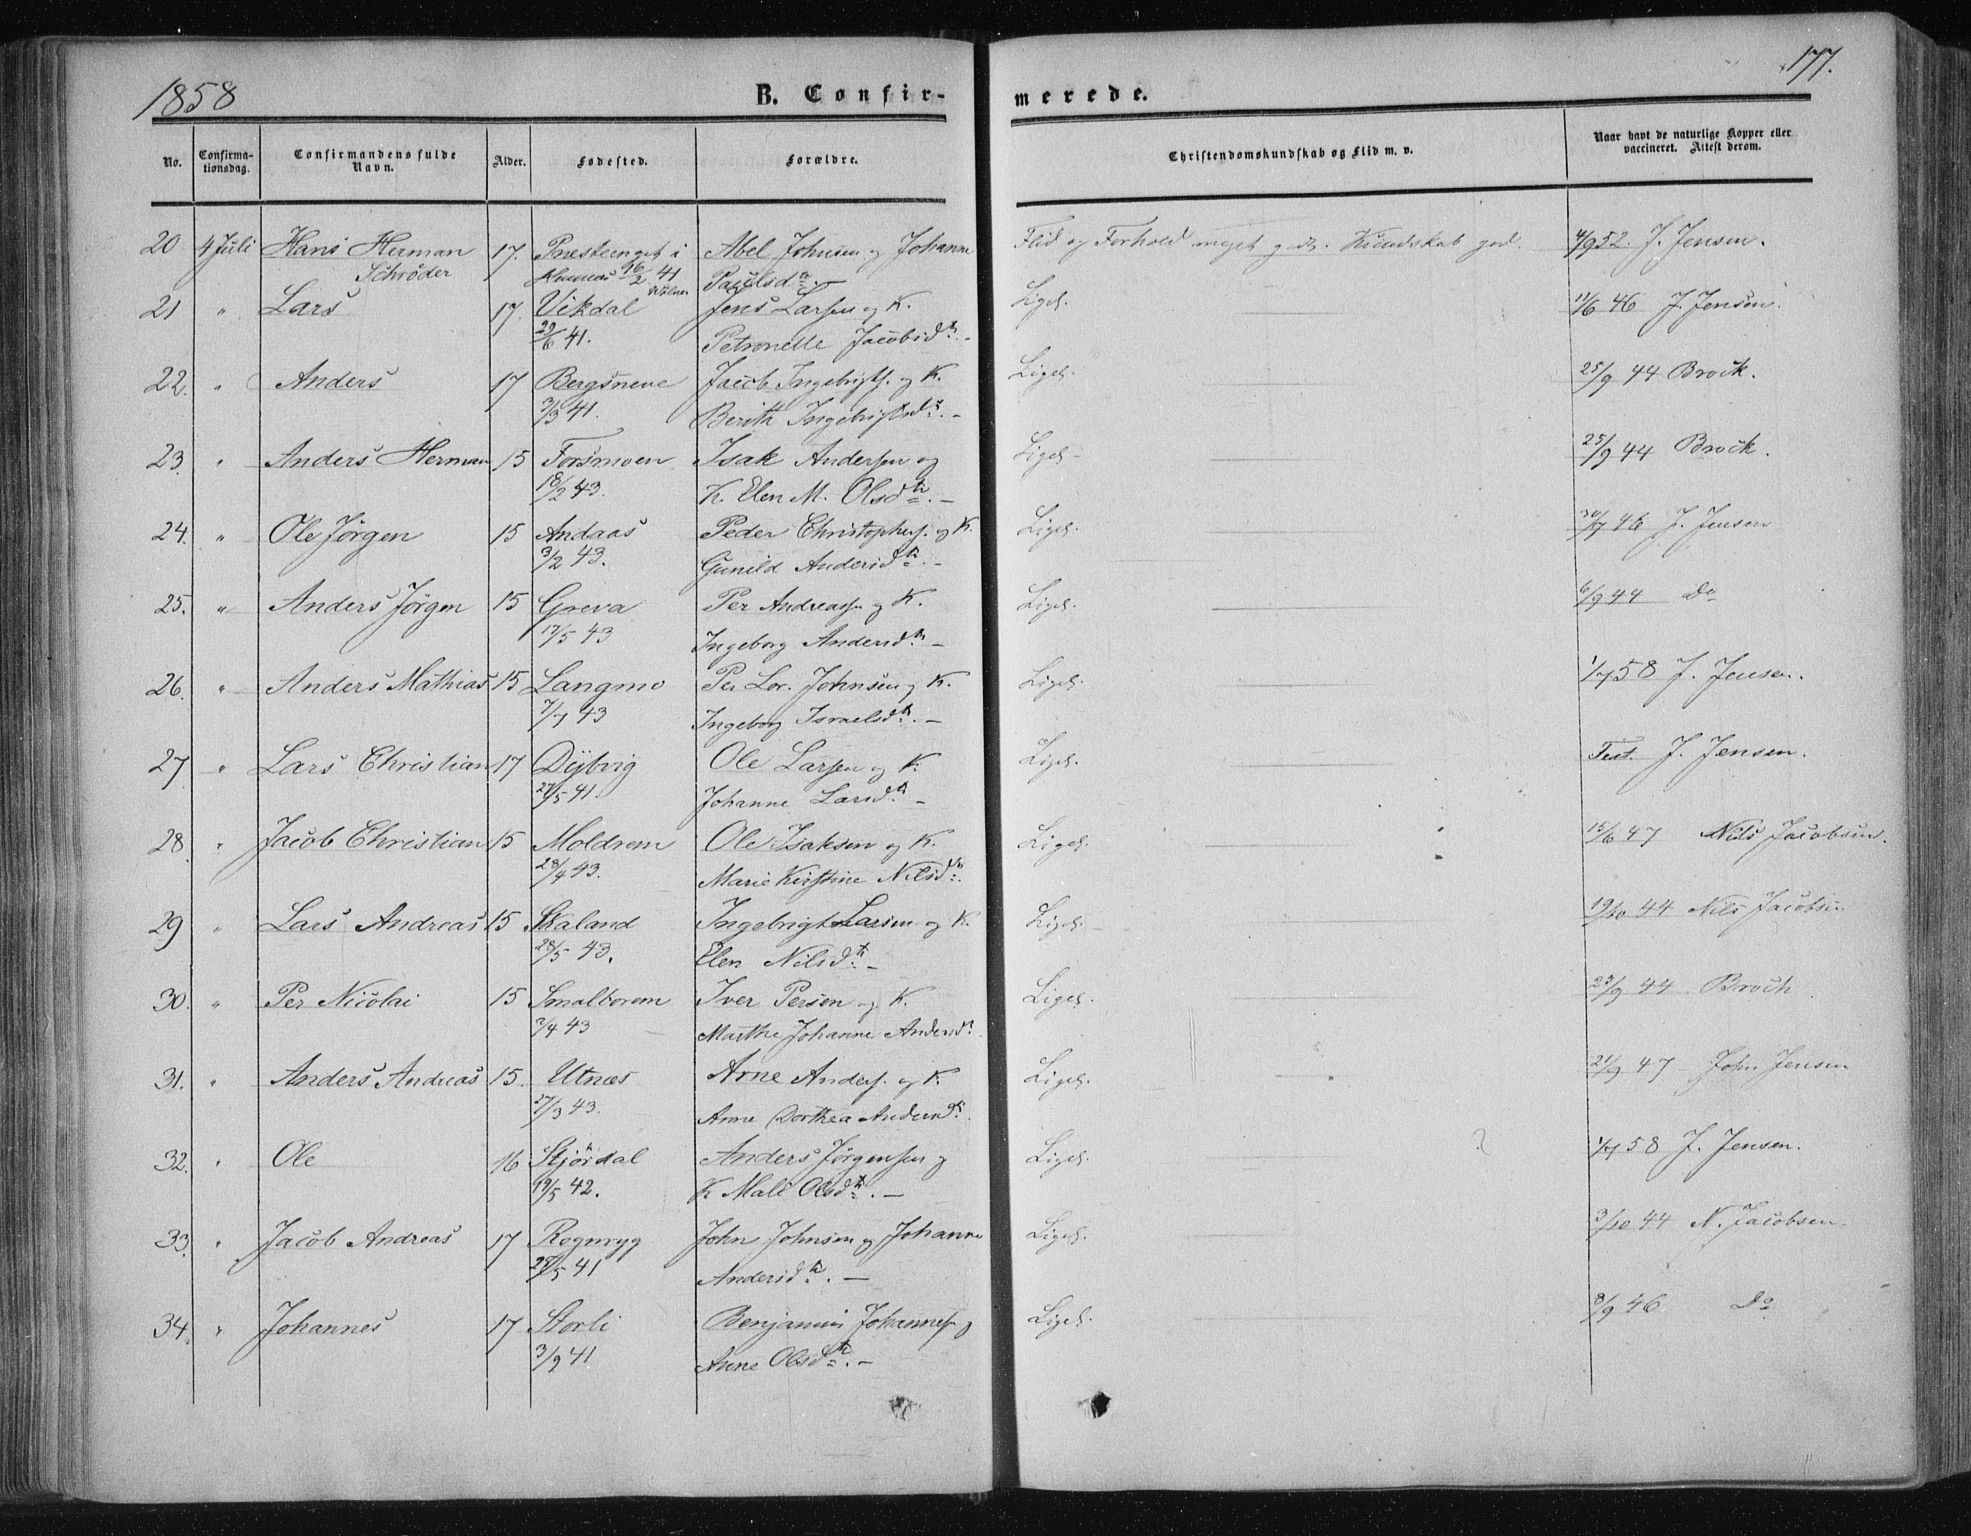 1858
B. Confir-
merede.
177.
No.
Confirma-
tionsdag.
Confirmandens fulde
Navn.
Alder.
Fødested.
Forældre.
Christendomskundskab og Flid m. v.
Naar havt de naturlige Kopper eller
vaccineret. Attest derom.
20 4 Juli Hans Herman 17. Præsteenget i Abel Johnsen og Johanne Flid og Forhold meget g. Kundskab god. 4/9 52. J. Jensen.
Schrøder 16/2 41 Paulsd.
21 " Lars 17. Vikdal Jens Larsen og K. Liges. 11/6 46 J. Jensen.
29/6 41. Petronelle Jacobsd. –
22. " Anders 17 Bergsneve Jacob Ingebrigts. og K. Liges. 25/9 44 Brock.
3/3 41. Berith Ingebrigtsd. –
23. " Anders Herman 15 Forsmoen Isak Andersen og Liges. 25/9 44 Brock.
18/2 43. K. Elen M. Olsd. –
24. " Ole Jørgen 15 Andaas Peder Christophers. og K. Liges. 30/7 46 J. Jensen
3/2 43. Gunild Andersd. –
25. " Anders Jørgen 15 Greva Per Andreass. og K. Liges. 6/9 44 Do
17/5 43 Ingeborg Andersd. –
26. " Anders Mathias 15 Langmo Per Lor. Johnsen og K. Liges. 1/7 58 J. Jensen.
7/7 43 Ingeborg Israelsd. –
27 " Lars Christian 17 Dybvig Ole Larsen og K. Liges. Test. J. Jensen.
27/5 41. Johanne Larsd. –
28. " Jacob Christian 15 Moldrem Ole Isaksen og K. Liges. 15/6 47 Nils Jacobsen.
28/4 43. Marie Kirstine Nilsd.
29 " Lars Andreas 15 Skaland Ingebrigt Larsen og K. Liges. 19/10 44 Nils Jacobsen
28/5 43. Elen Nilsd. –
30. " Per Nicolai 15 Smalborem Iver Persen og K. Liges. 23/9 44 Broch
7/4 43 Marthe Johanne Andersd.
31. " Anders Andreas 15. Utnæs Arne Anders. og K. Liges. 21/9 47 John Jensen
27/3 43. Anne Dorthea Andersd.
32. " Ole 16 Stjørdal Anders Jørgensen og Liges. 1/7 58 J. Jensen.
19/5 42. K Mali Olsd. –
33. " Jacob Andreas 17 Rognryg John Johnsen og Johanne Liges. 3/10 44 N. Jacobsen
25/5 41 Andersd. –
34. " Johannes 17 Storli Benjamin Johannes. og Liges. 8/9 46 Do
3/9 41 Anne Olsd. –